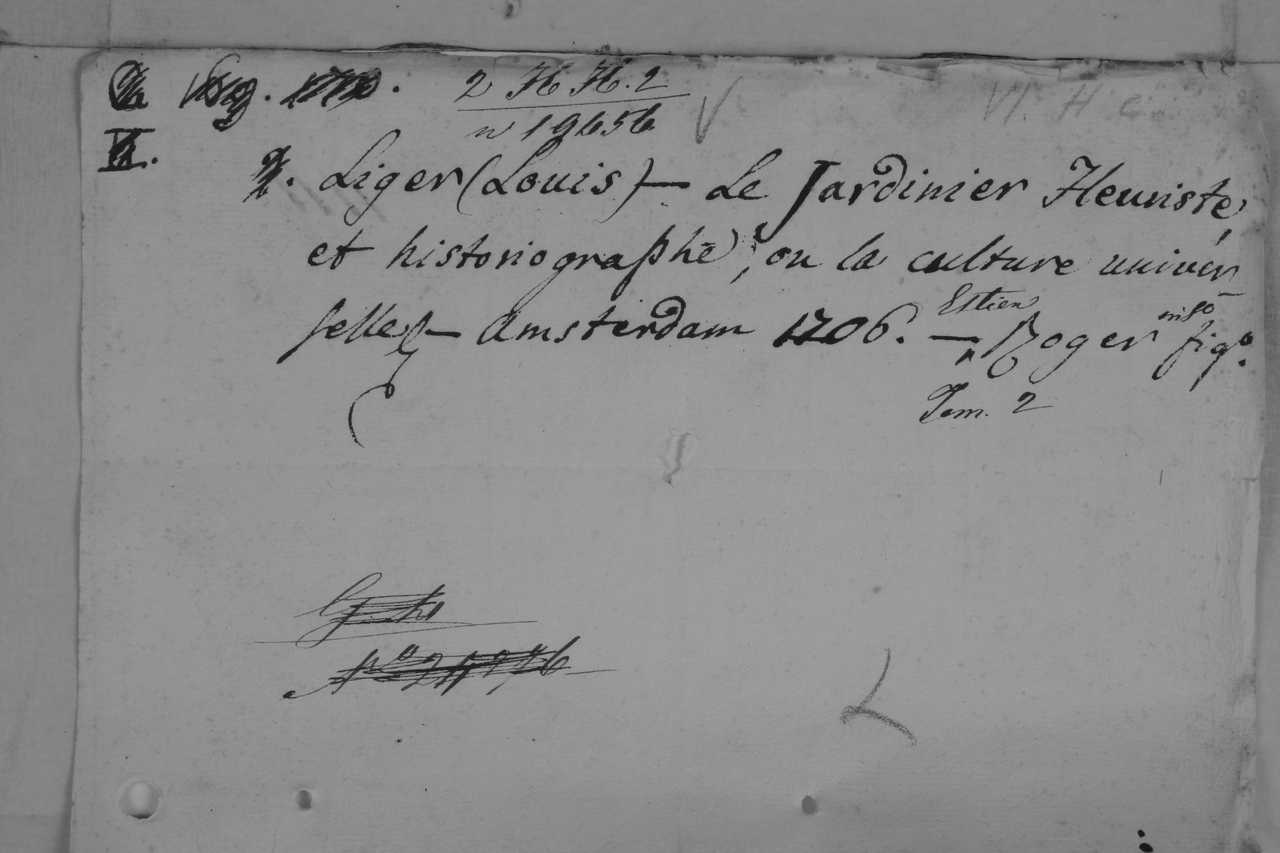 2 H H. 2
n 19656
Liger (Louis) — Le Jardinier Fleuriste,
et historiographe, ou la culture univer
selle — Amsterdam 1706. — Estien Roger in 8º figº.
Tom. 2
L